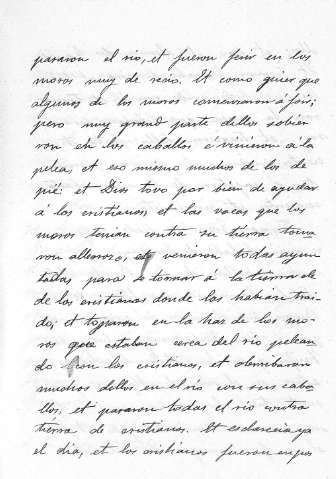 pasaron el rio, et fueron ferir en los
moros muy de recio. Et como quier que
algunos de los moros comenzaron á foir;
pero muy grand parte dellos sobie
ron en los caballos é vinieron á la
pelea, et eso mismo muchos de los de
pié: et Dios tovo por bien de ayudar
á los cristianos, et las vacas que los
moros tenian contra su tierra torna
ron et venieron todas ayun
tadas para tornar á la tierra
de los cristianos donde las habian trai
do, et toparon en la haz de los mo
ros que estaban cerca del rio pelean
do con los cristianos, et derribaron
muchos dellos en el rio con sus caba
llos, et pasaron todas el rio contra
tierra de cristianos. Et esclarecia ya
el dia, et los cristianos fueron empos